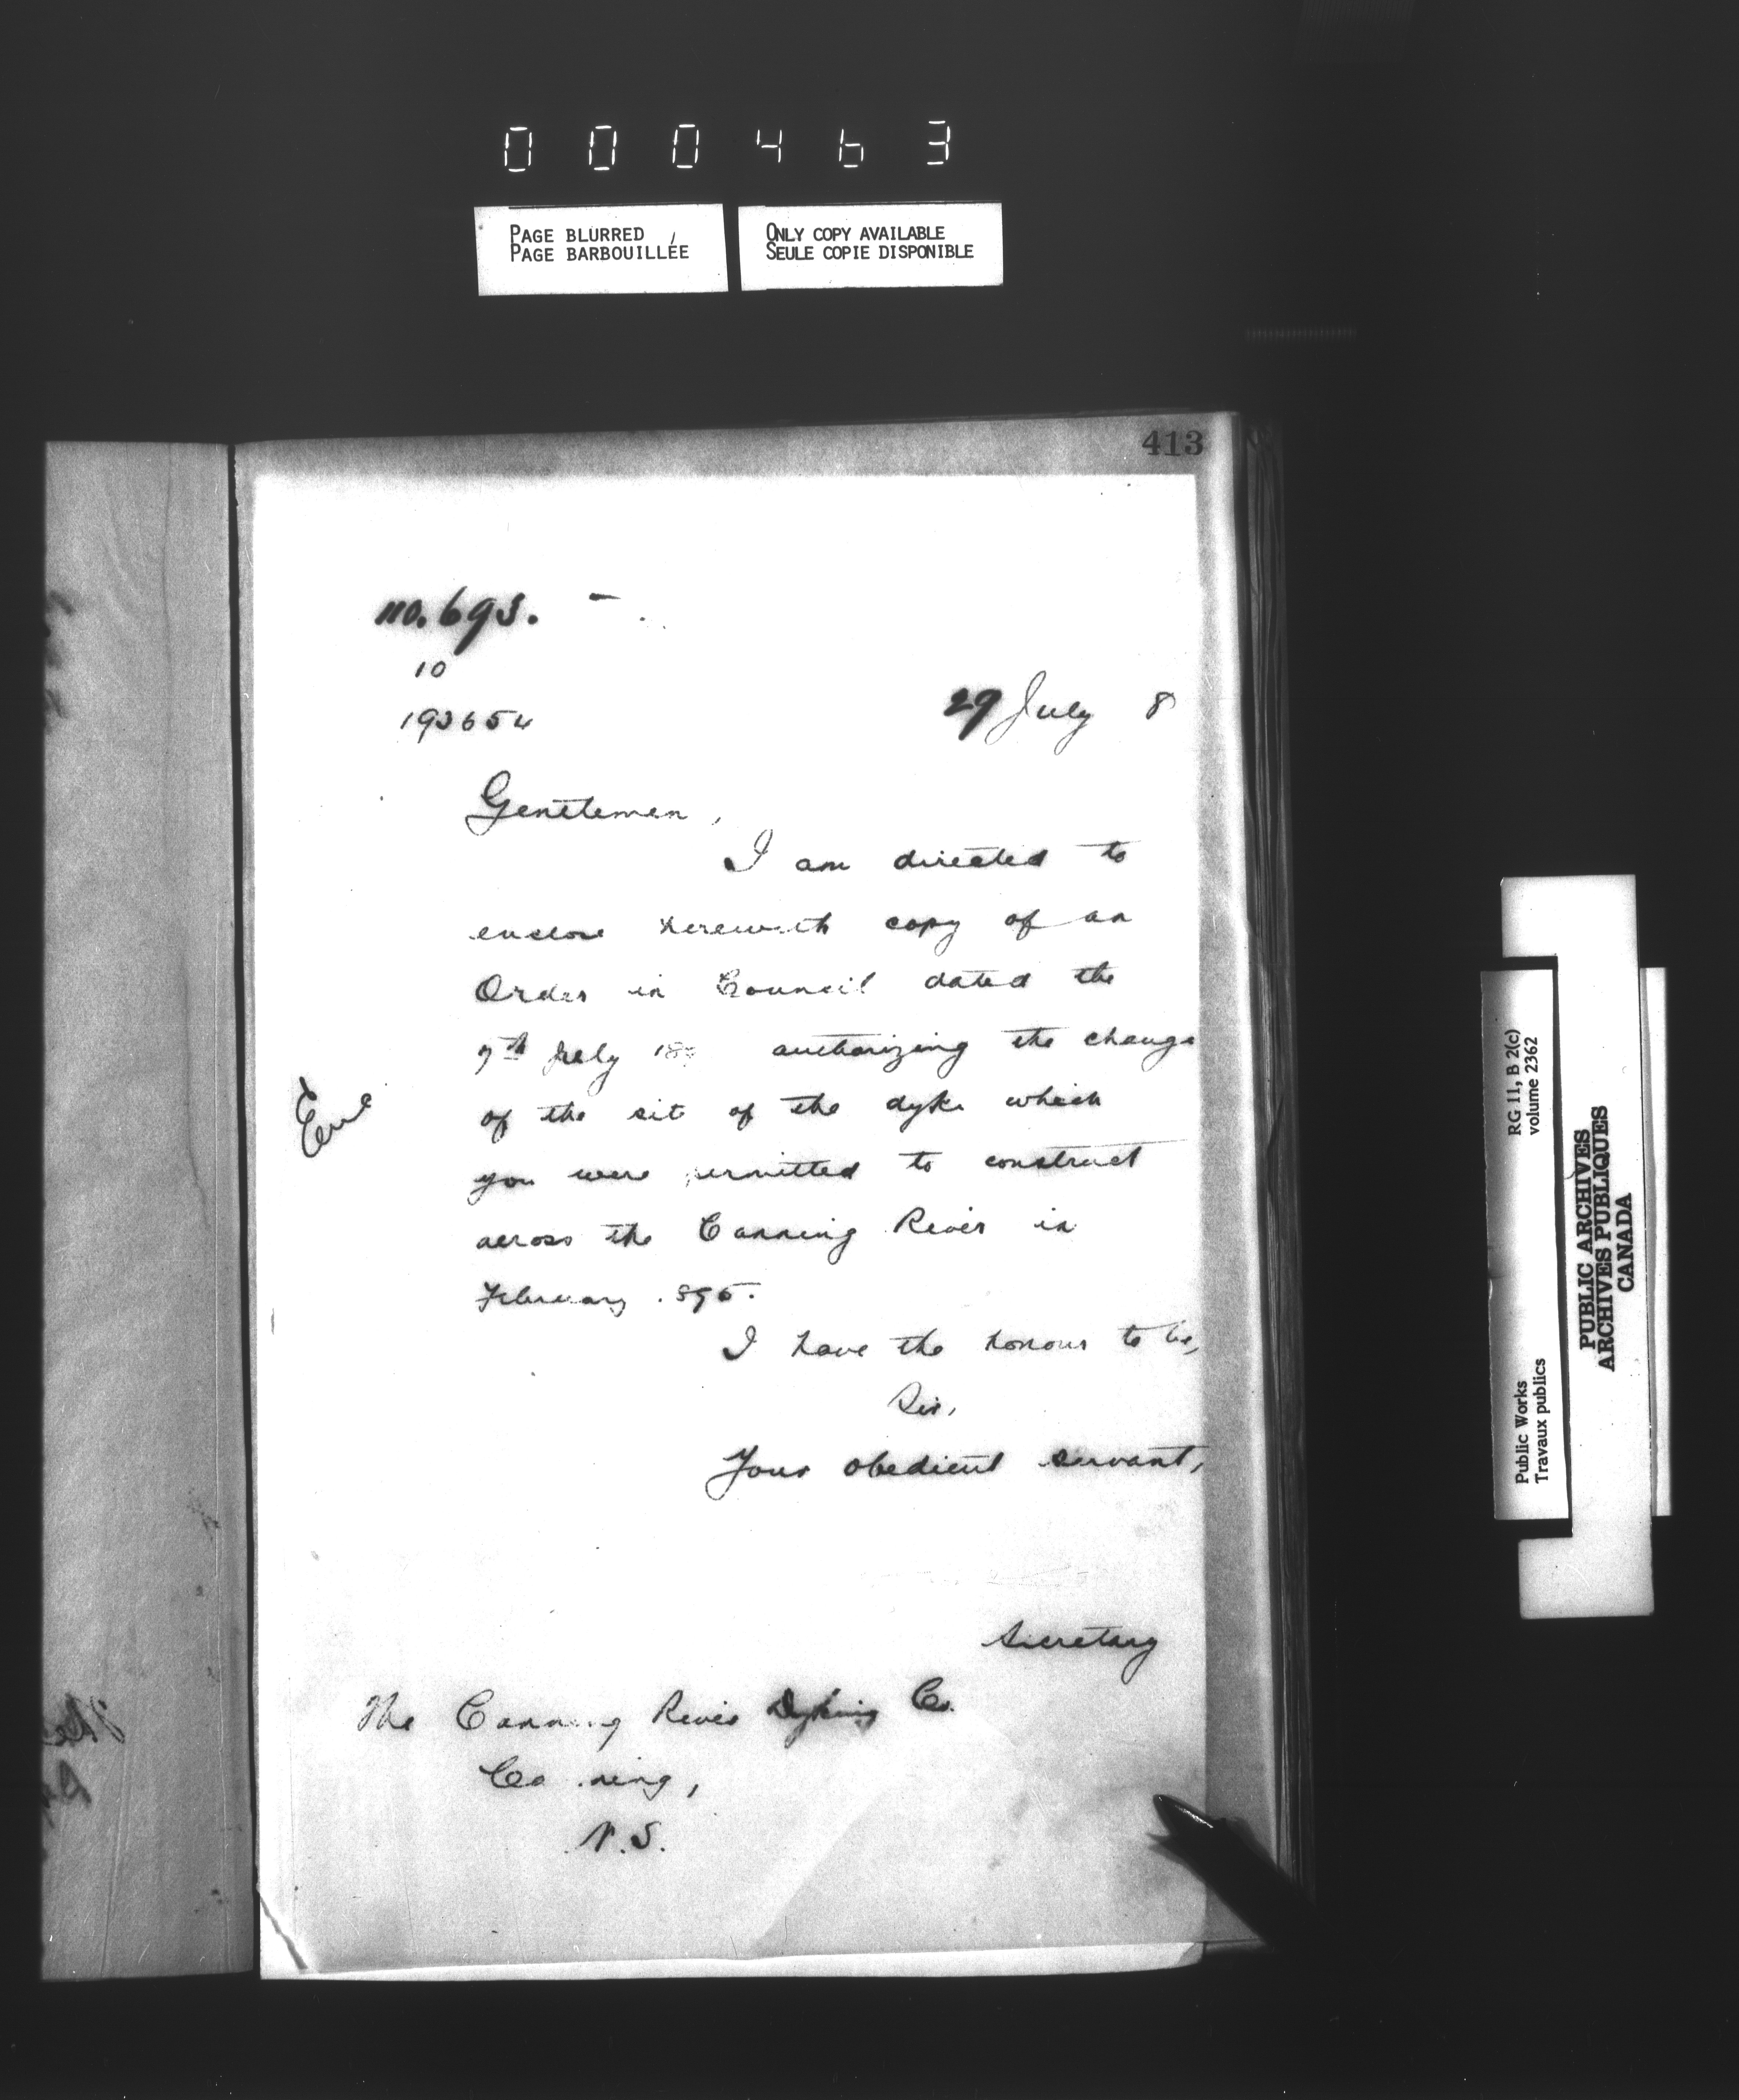 000463
PAGE BLURRED
PAGE BARBOUILLÉE
ONLY COPY AVAILABLE
SEULE COPIE DISPONIBLE
413
no. 693.
10
193654
29 July 8
Gentlemen,
I am directed to
enclose herewith copy of an
Order in Council dated the
7th July 18 authorizing the change
Enc
of the site of the dyke which
you were permitted to construct
across the Canning River in
February 1895.
I have the honour to be,
Sir,
Your obedient servant,
Secretary
The Canning River Dyking Co.
Canning,
N.S.
RG 11, B 2(c)
volume 2362
Public Works
Travaux publics
PUBLIC ARCHIVES
ARCHIVES PUBLIQUES
CANADA